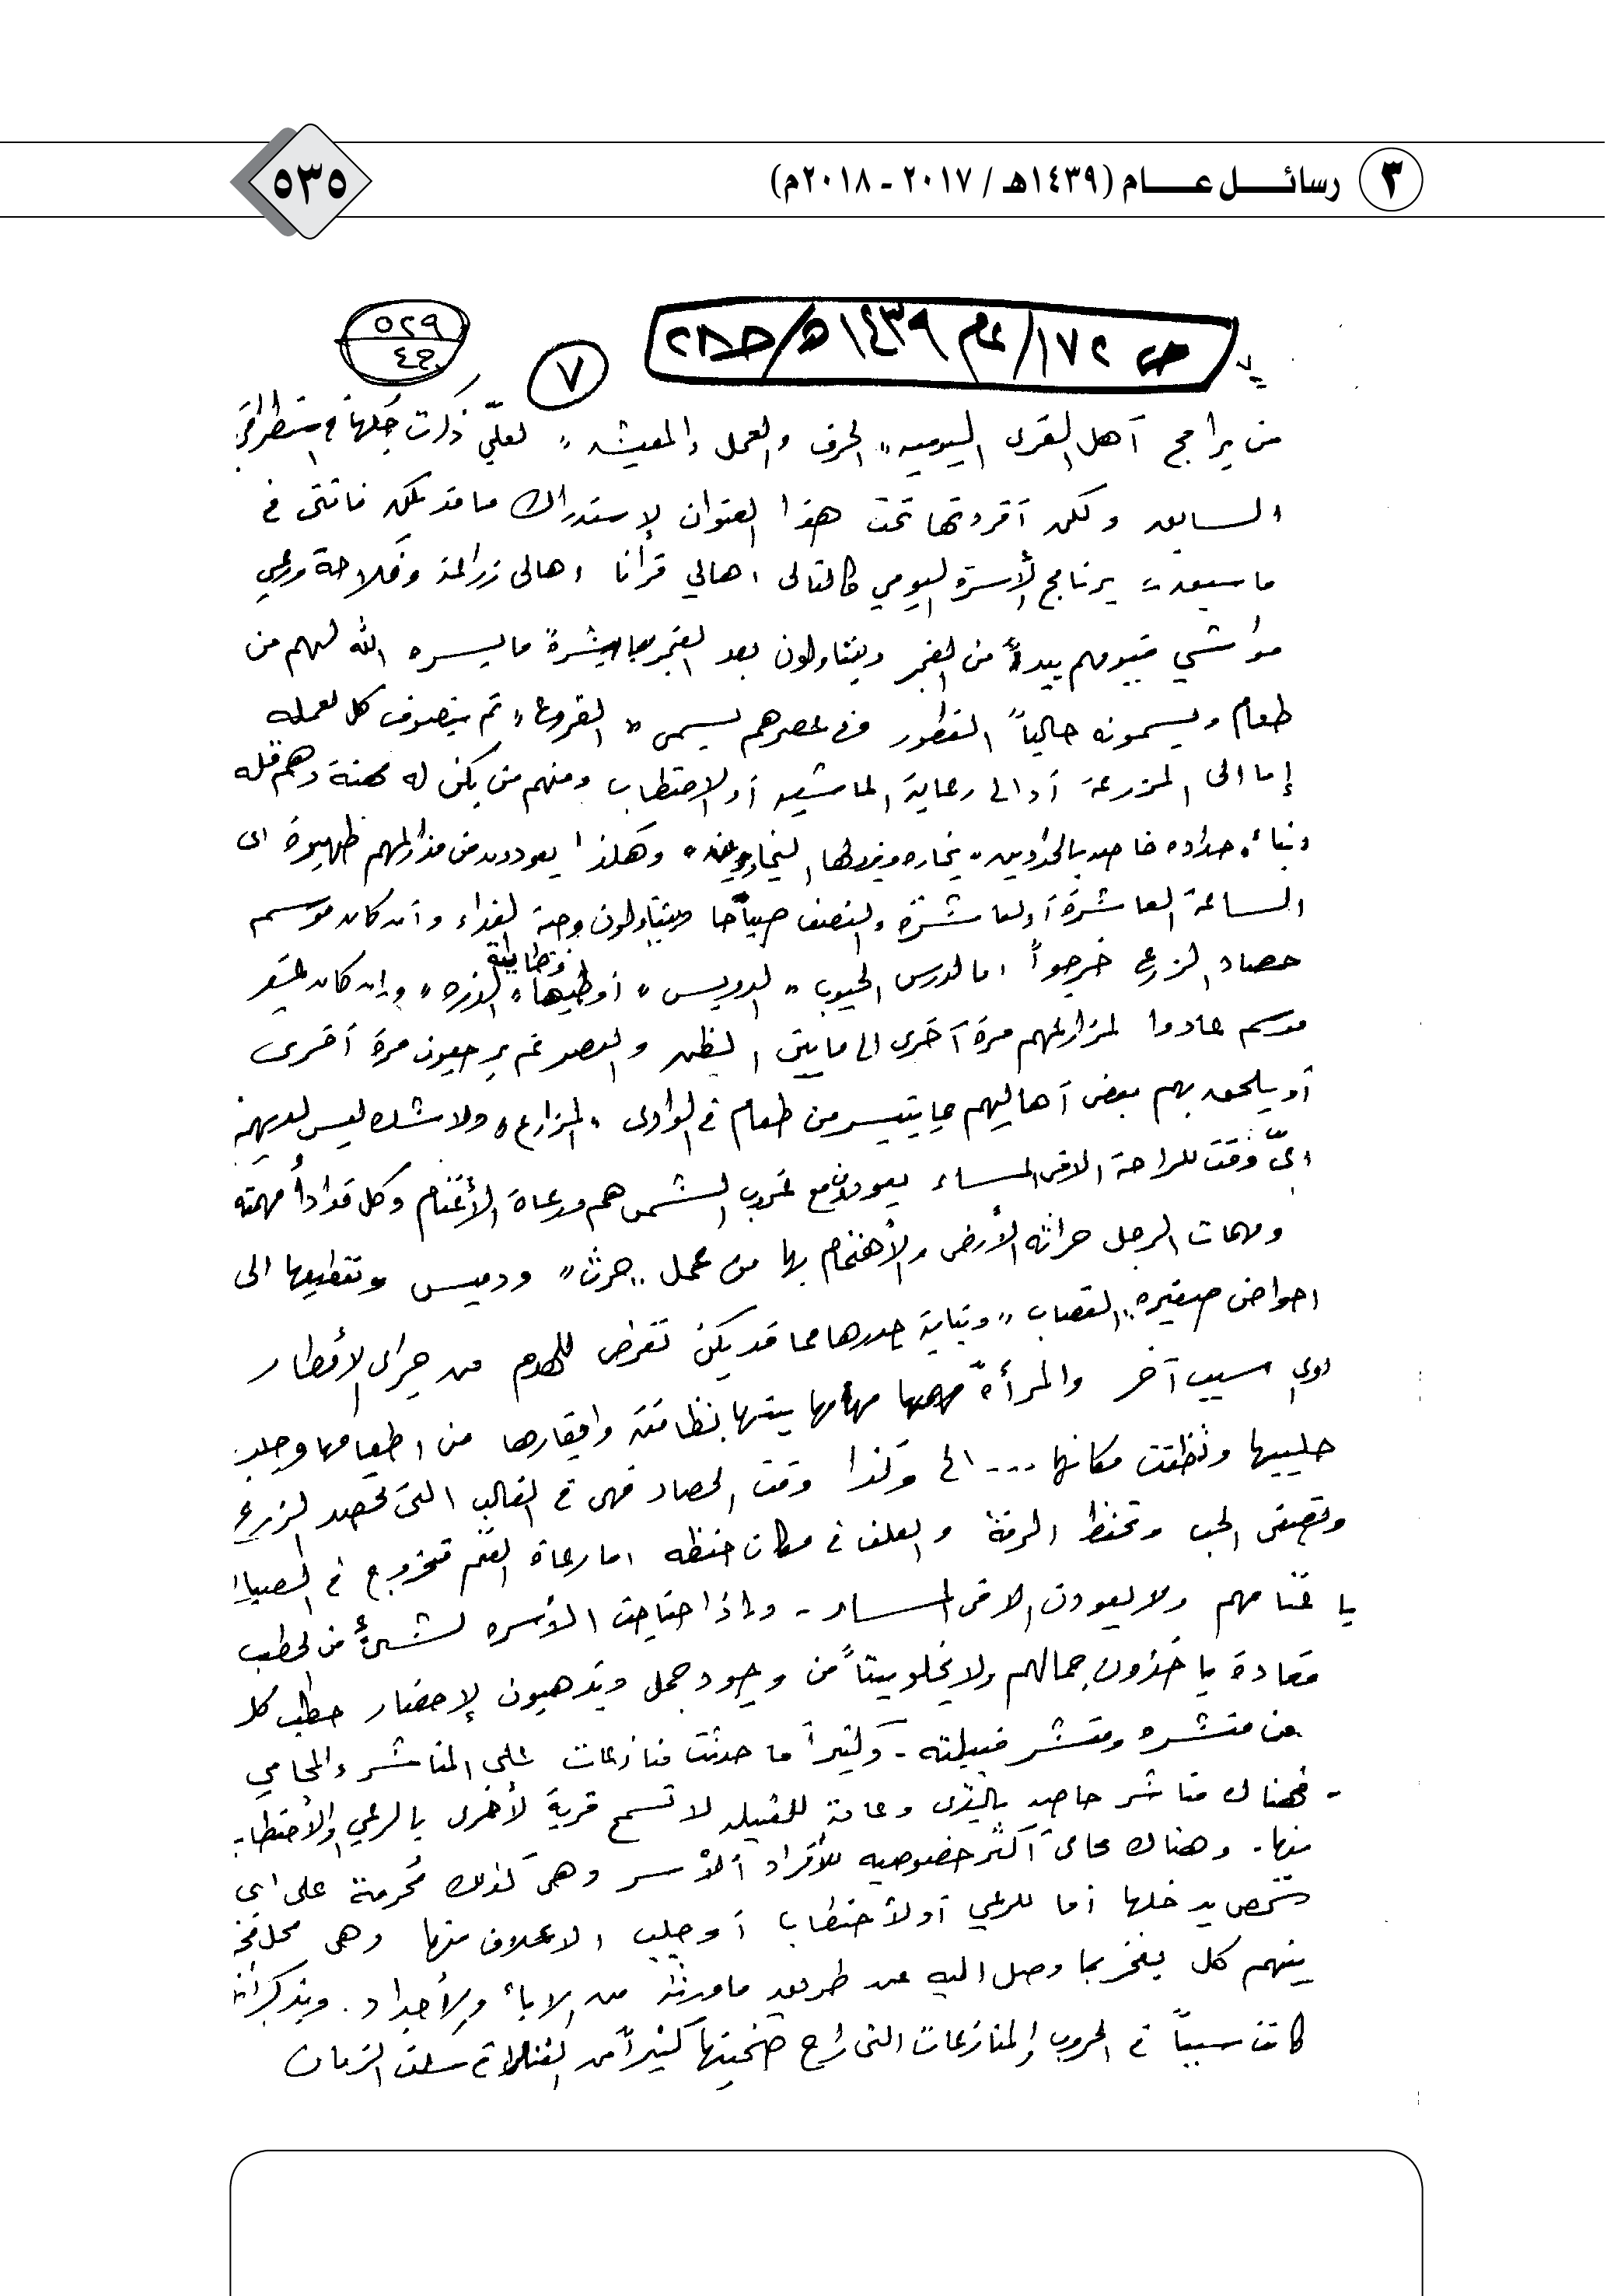 ٣ رسائل عام (١٤٣٩هـ / ٢٠١٧ - ٢٠١٨م)
٥٣٥
ص ١٧٢/ عام ١٤٣٩هـ/ حـ٢٨
٧
٥٢٩
ح٤
من برامج أهل القرى اليومية" الحرف والعمل والمعيشه" لعلّي ذكرت جلها في
السابق ولكن أفردتها تحت هذا العنوان لإستدراك ما قد يكن فاتني في
ما سبق :- برنامج الأسرة اليومي كالتالى اهالي قرانا اهالى زراعة وفلاحة ورعي
مواشي فيومهم يبدأ من الفجر ويتناولون بعد الفجر مباشرةً ما يسره الله لهم من
طعام ويسمونه حالياً الفطور وفى عصرهم يسمى " القروع" ثم ينصرف كل لعمله
إما الى المزرعة أو الى رعاية الماشيه أو الاحتطاب ومنهم من يكن له مهنة وهم قله
وهكذا يعودون من مزارعهم ظهيرة الى
الساعة العاشرة أو العاشرة والنصف صباحا ويتناولون وجبة الغداء وأن كان موسم
حصاد الزرع خرجواً اما لدرس الحبوب " الدويس" أو " الذره" وإن كان غير
موسم عادوا لمزارعهم مرة آخرى الى ما بين الظهر والعصر ثم يرجعون مرة أخرى
أو يلحق بهم بعض أهاليهم بما يتيسر من طعام في الوادى "المزارع" ولا شك ليس لديهم
اىّ وقت للراحة الا في المساء يعودون مع غروب الشمس هم ورعاة الأغنام وكل قد أدا مهمته
ومهمات الرجل حراثه الأرض والأهتمام بها من عمل "حرث" ودميس وتقطيعها الى
احواض صغيره "القصاب" وبناية جدرها مما قد يكن تعرض للهدم من جراى الأمطار
اوي سبب آخر والمرأة مهامها بيتها بنظافته وابقارها من اطعامها وجلب
حليبها ونظافت مكانها ... الى وكذا وقت الحصاد فهى في الغالب التى تحصد الزرع
وتصفى الحب وتحفظ الرفة والعلف في مكان حفظه اما رعاة الغنم فخروج في الصباح
با غنامهم ولا يعودون الا في المساء - وإذا احتاجت الأسره لشيئ من الحطب
فعادة يا خذون جمالهم ولا يخلو بيتاً من وجود جمل ويذهبون لإحضار حطب كل
من منشره ومنشر قبيلته - وكثيراً ما حدثت منازعات على المناشر والمحامي
- فهناك مناشر خاصه بالقرى وعامة للقبيله لا تسمح قرية لأخرى بالرعي والأحتطاب
منها. وهناك محامى أكثر خصوصيه للأفراد أو الأسر وهى كذلك مُحرمة على اى
شخص يدخلها أما للرعي أو لأحتطاب أو جلب الاعلاف منها وهى محل فخر
بينهم كل يفخر بما وصل اليه عن طريق ما ورثه من الاباء والأجداد. ويذكر أنها
كانت سبباً في الحروب والمنازعات التى راح ضحيتها كثيراً من القتلى في سلف الزمان